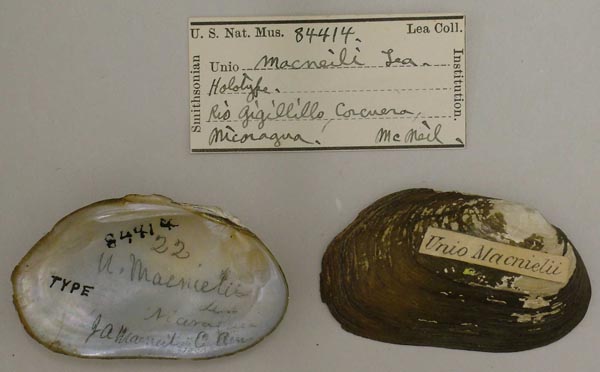 U. S. Nat. Mus. 84414. Lea Coll.
Smithsonian
Unio Macneili Lea.
Holotype.
Rio Gigillillo, Corcuera,
Nicaragua. McNeil.
Institution.
84414
22
U. Macnielii
TYPE
Lea
Unio Macnielii